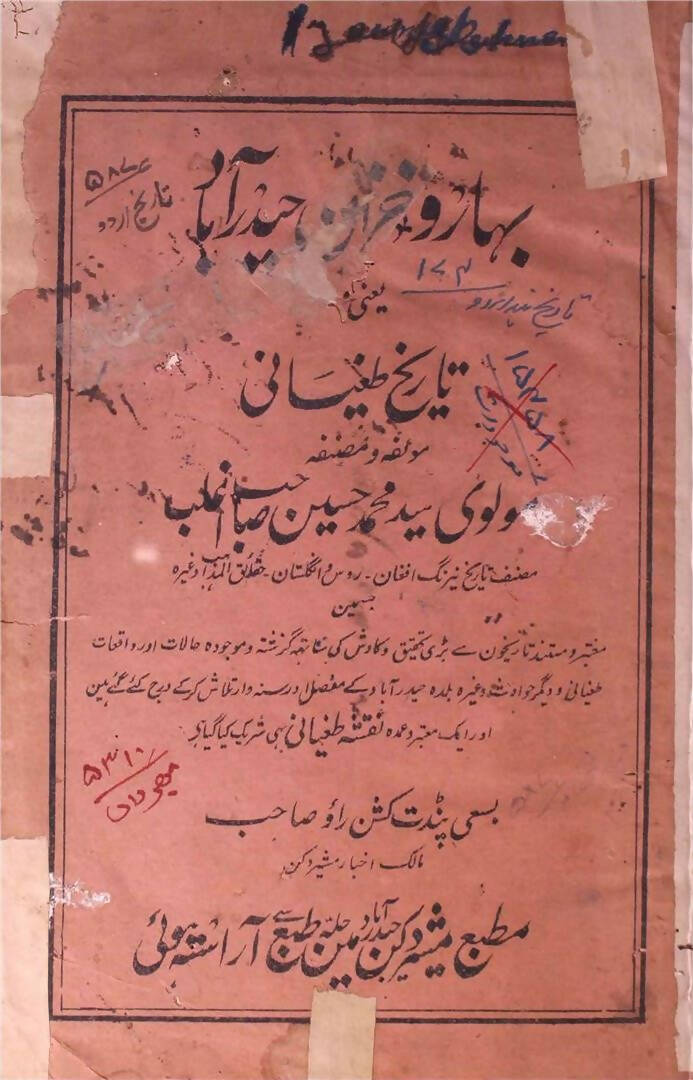 بہار و خزان حیدرآباد
۵۸۷۶
تاریخ اردو
یعنی
۱۷۴
تاریخ طغیانی
مولفہ و مصنفہ
مولوی سید محمد حسین صاحب اغلب
مصنف تاریخ نیرنگ افغان - روس و انگلستان - حقائق المذاہب وغیرہ
جسمین
معتبر و مستند تاریخون سے بڑی تحقیق و کاوش کی ساتھ گزشتہ و موجودہ حالات اور واقعات
طغیانی و دیگر حوادث وغیرہ بلدہ حیدرآباد کے مفصل اور سنہ وار تلاش کر کے درج کئے گئے ہین
اور ایک معتبر و عمدہ نقشہ طغیانی بہی شریک کیا گیا ہی
۵۳۱۰
بسعی پنڈت کشن راؤ صاحب
مالک اخبار مشیر دکن
مطبع مشیر دکن حیدرآباد مین حلہ طبع سے آراستہ ہوئی